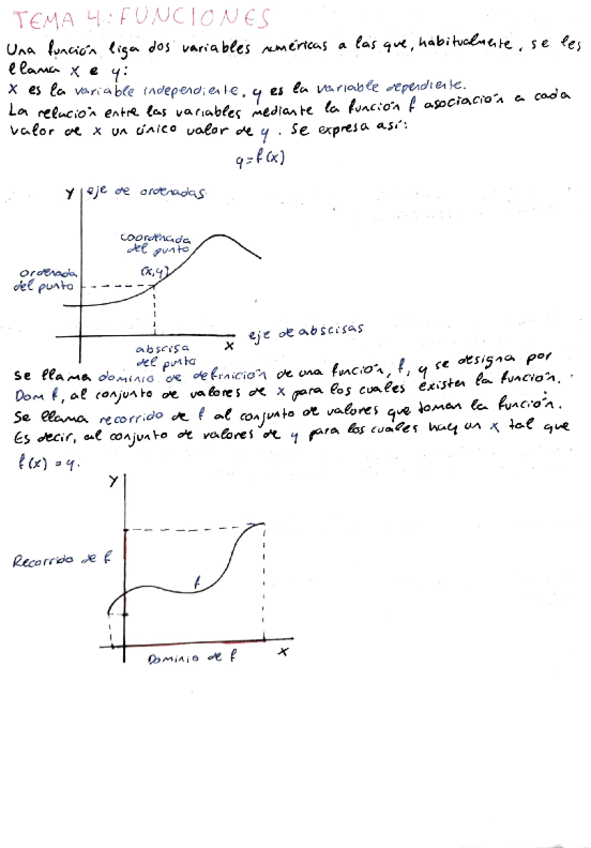 TEMA 4: FUNCIONES
Una función liga dos variables numéricas a las que, habitualmente, se les
llama x e y:
x es la variable independiente, y es la variable dependiente.
La relación entre las variables mediante la función f asociación a cada
valor de x un único valor de y. Se expresa así:
y=f(x)
Y eje de ordenadas
coordenada
del punto
(x,y)
ordenada
del punto
eje de abscisas
abscisa
del punto
X
Se llama dominio de definición de una función, f, y se designa por
Dom f, al conjunto de valores de x para los cuales existen la función.
Se llama recorrido de f al conjunto de valores que toman la función.
Es decir, al conjunto de valores de y para los cuales hay un x tal que
f(x) = y.
Y
Recorrido de f
f
Dominio de f
X